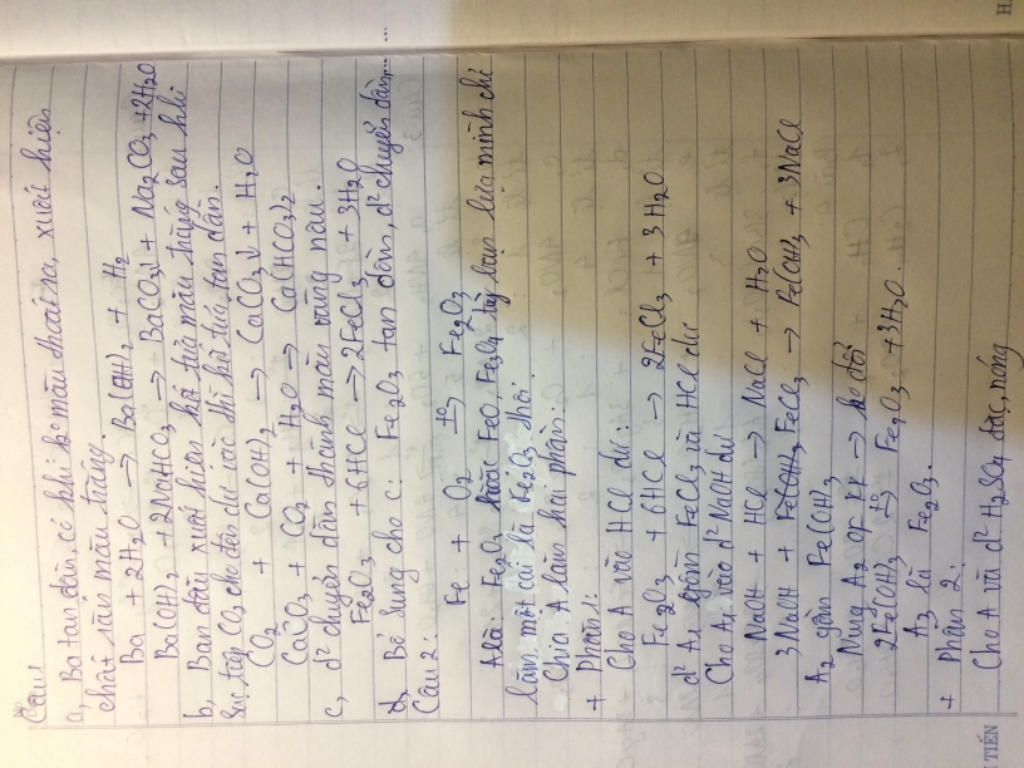 Câu 1
a, Ba tan dần, có khí ko màu thoát ra, xuất hiện
chất rắn màu trắng.
Ba + 2H2O → Ba(OH)2 + H2
Ba(OH)2 + 2NaHCO3 → BaCO3↓ + Na2CO3 + 2H2O
b, Ban đầu xuất hiện kết tủa màu trắng sau khi
sục tiếp CO2 cho đến dư vào thì kết tủa tan dần.
CO2 + Ca(OH)2 → CaCO3↓ + H2O
CaCO3 + CO2 + H2O → Ca(HCO3)2
c, d2 chuyển dần thành màu vàng nâu.
Fe2O3 + 6HCl → 2FeCl3 + 3H2O
d, Bổ sung cho c: Fe2O3 tan dần, d2 chuyển dần...
Câu 2:
Fe + O2 to→ Fe2O3
A là: Fe2O3 hoặc FeO, Fe3O4 tùy bạn lựa mình chỉ
làm một cái là Fe2O3 thôi.
Chia A làm hai phần:
+ Phần 1:
Cho A vào HCl dư:
Fe2O3 + 6HCl → 2FeCl3 + 3H2O
d2 A1 gồm FeCl3 và HCl dư
Cho A1 vào d2 NaOH dư
NaOH + HCl → NaCl + H2O
3NaOH + FeCl3 → Fe(OH)3 + 3NaCl
A2 gồm Fe(OH)3
Nung A2 ở to → ko đổi
2Fe(OH)3 to→ Fe2O3 + 3H2O.
A3 là Fe2O3.
+ Phần 2.
Cho A và d2 H2SO4 đặc, nóng
TIẾN